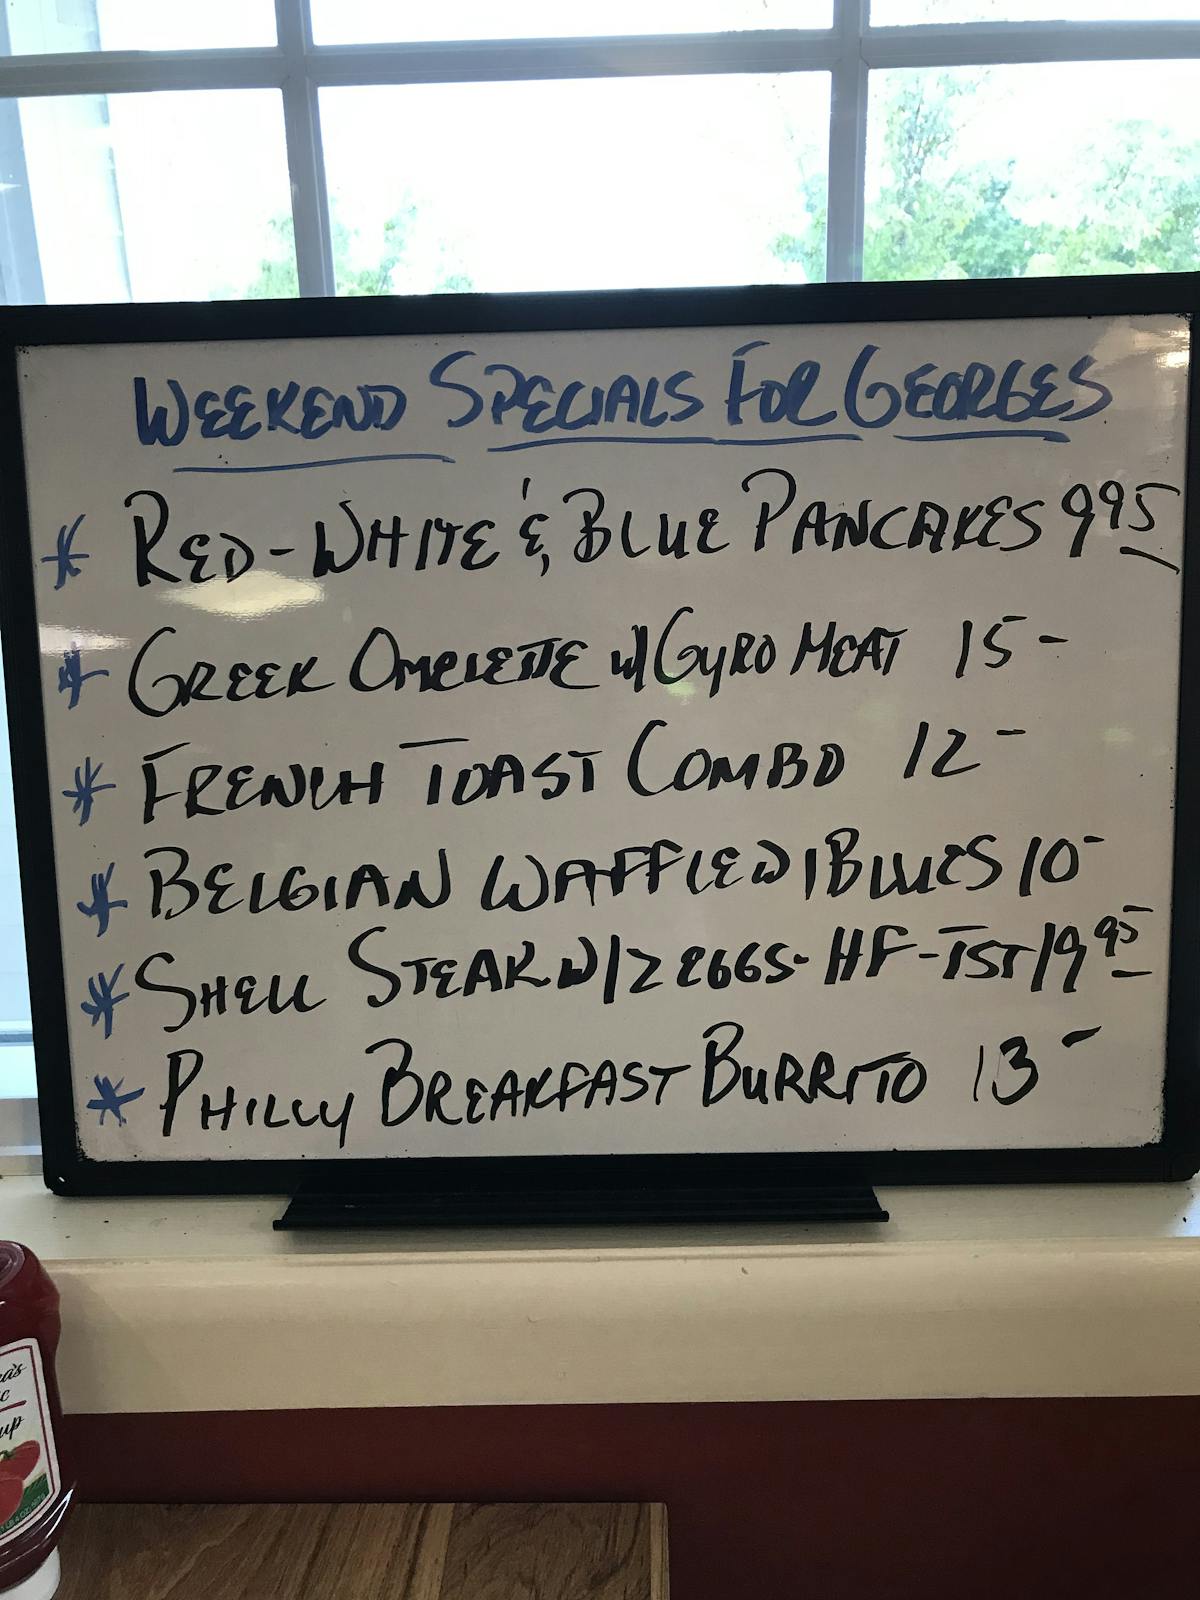 WEEKEND SPECIALS FOR GEORGES
* RED-WHITE & BLUE PANCAKES 9 95
* GREEK OMELETTE W/ GYRO MEAT 15-
* FRENCH TOAST COMBO 12-
* BELGIAN WAFFLE W/BLUES 10-
* SHELL STEAK W/2 EGGS- HF-TST 19 95
* PHILLY BREAKFAST BURRITO 13-